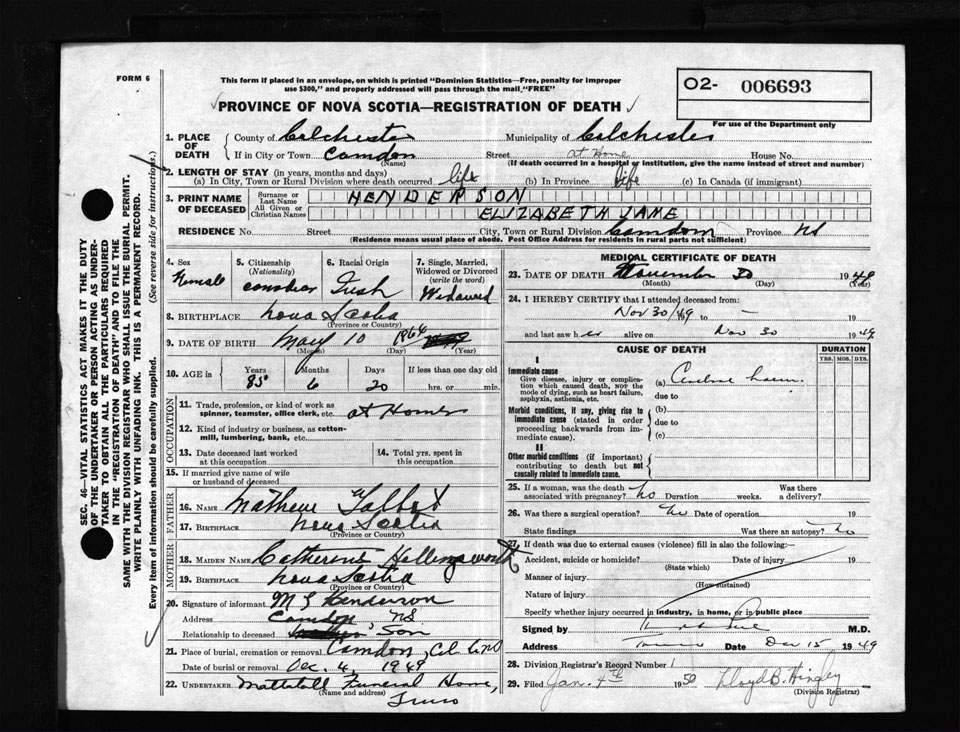 FORM 6
This form if placed in an envelope, on which is printed "Dominion Statistics—Free, penalty for improper
use $300," and properly addressed will pass through the mail "FREE"
O2- 006693
For use of the Department only
PROVINCE OF NOVA SCOTIA—REGISTRATION OF DEATH
1. PLACE OF DEATH
County of Colchester Municipality of Colchester
If in City or Town Camdon Street at Home House No.
(Name) (If death occurred in a hospital or institution, give the name instead of street and number)
2. LENGTH OF STAY (in years, months and days)
(a) In City, Town or Rural Division where death occurred life (b) In Province life (c) In Canada (if immigrant)
3. PRINT NAME OF DECEASED
Surname or Last Name HENDERSON
All Given or Christian Names ELIZABETH JANE
RESIDENCE No. Street City, Town or Rural Division Camdon Province NS
(Residence means usual place of abode. Post Office Address for residents in rural parts not sufficient)
4. Sex Female
5. Citizenship (Nationality)
6. Racial Origin Irish
7. Single, Married, Widowed or Divorced (write the word) Widowed
8. BIRTHPLACE Nova Scotia
(Province or Country)
9. DATE OF BIRTH May 10 1864
(Month) (Day) (Year)
10. AGE in Years Months Days If less than one day old
85 6 20 hrs. or min.
OCCUPATION
11. Trade, profession, or kind of work as spinner, teamster, office clerk, etc. at Home
12. Kind of industry or business, as cotton-mill, lumbering, bank, etc.
13. Date deceased last worked at this occupation
14. Total yrs. spent in this occupation
15. If married give name of wife or husband of deceased
FATHER
16. NAME Mathew Talbot
17. BIRTHPLACE Nova Scotia
(Province or Country)
MOTHER
18. MAIDEN NAME Catherine Hollingsworth
19. BIRTHPLACE Nova Scotia
(Province or Country)
20. Signature of informant M S Henderson
Address Camdon, NS
Relationship to deceased Son
21. Place of burial, cremation or removal Camdon, Col. Co NS
Date of burial or removal Dec. 4, 1949
22. UNDERTAKER Mattatall Funeral Home,
(Name and address)
Truro
MEDICAL CERTIFICATE OF DEATH
23. DATE OF DEATH November 30 1949
(Month) (Day) (Year)
24. I HEREBY CERTIFY that I attended deceased from:
Nov 30/49 19 to —
and last saw her alive on Nov 30 1949
CAUSE OF DEATH DURATION
YRS. MOS. DYS.
I
Immediate cause
Give disease, injury or complication which caused death, NOT the mode of dying, such as heart failure, asphyxia, asthenia, etc.
(a)
due to
Morbid conditions, if any, giving rise to immediate cause (stated in order proceeding backwards from immediate cause).
(b)
due to
(c)
II
Other morbid conditions (if important) contributing to death but not causally related to immediate cause.
25. If a woman, was the death associated with pregnancy? no Duration weeks. Was there a delivery?
26. Was there a surgical operation? no Date of operation 19
State findings Was there an autopsy? no
27. If death was due to external causes (violence) fill in also the following:—
Accident, suicide or homicide? Date of injury 19
(State which)
Manner of injury
(How sustained)
Nature of injury
Specify whether injury occurred in industry, in home, or in public place
Signed by M.D.
Address Truro Date Dec 15 1949
28. Division Registrar's Record Number 1
29. Filed Jan. 4th 1950 Lloyd B. Hingley
(Division Registrar)
SEC. 46—VITAL STATISTICS ACT MAKES IT THE DUTY
OF THE UNDERTAKER OR PERSON ACTING AS UNDER-
TAKER TO OBTAIN ALL THE PARTICULARS REQUIRED
IN THE "REGISTRATION OF DEATH" AND TO FILE THE
SAME WITH THE DIVISION REGISTRAR WHO SHALL ISSUE THE BURIAL PERMIT.
WRITE PLAINLY WITH UNFADING INK. THIS IS A PERMANENT RECORD.
Every item of information should be carefully supplied. (See reverse side for instructions.)